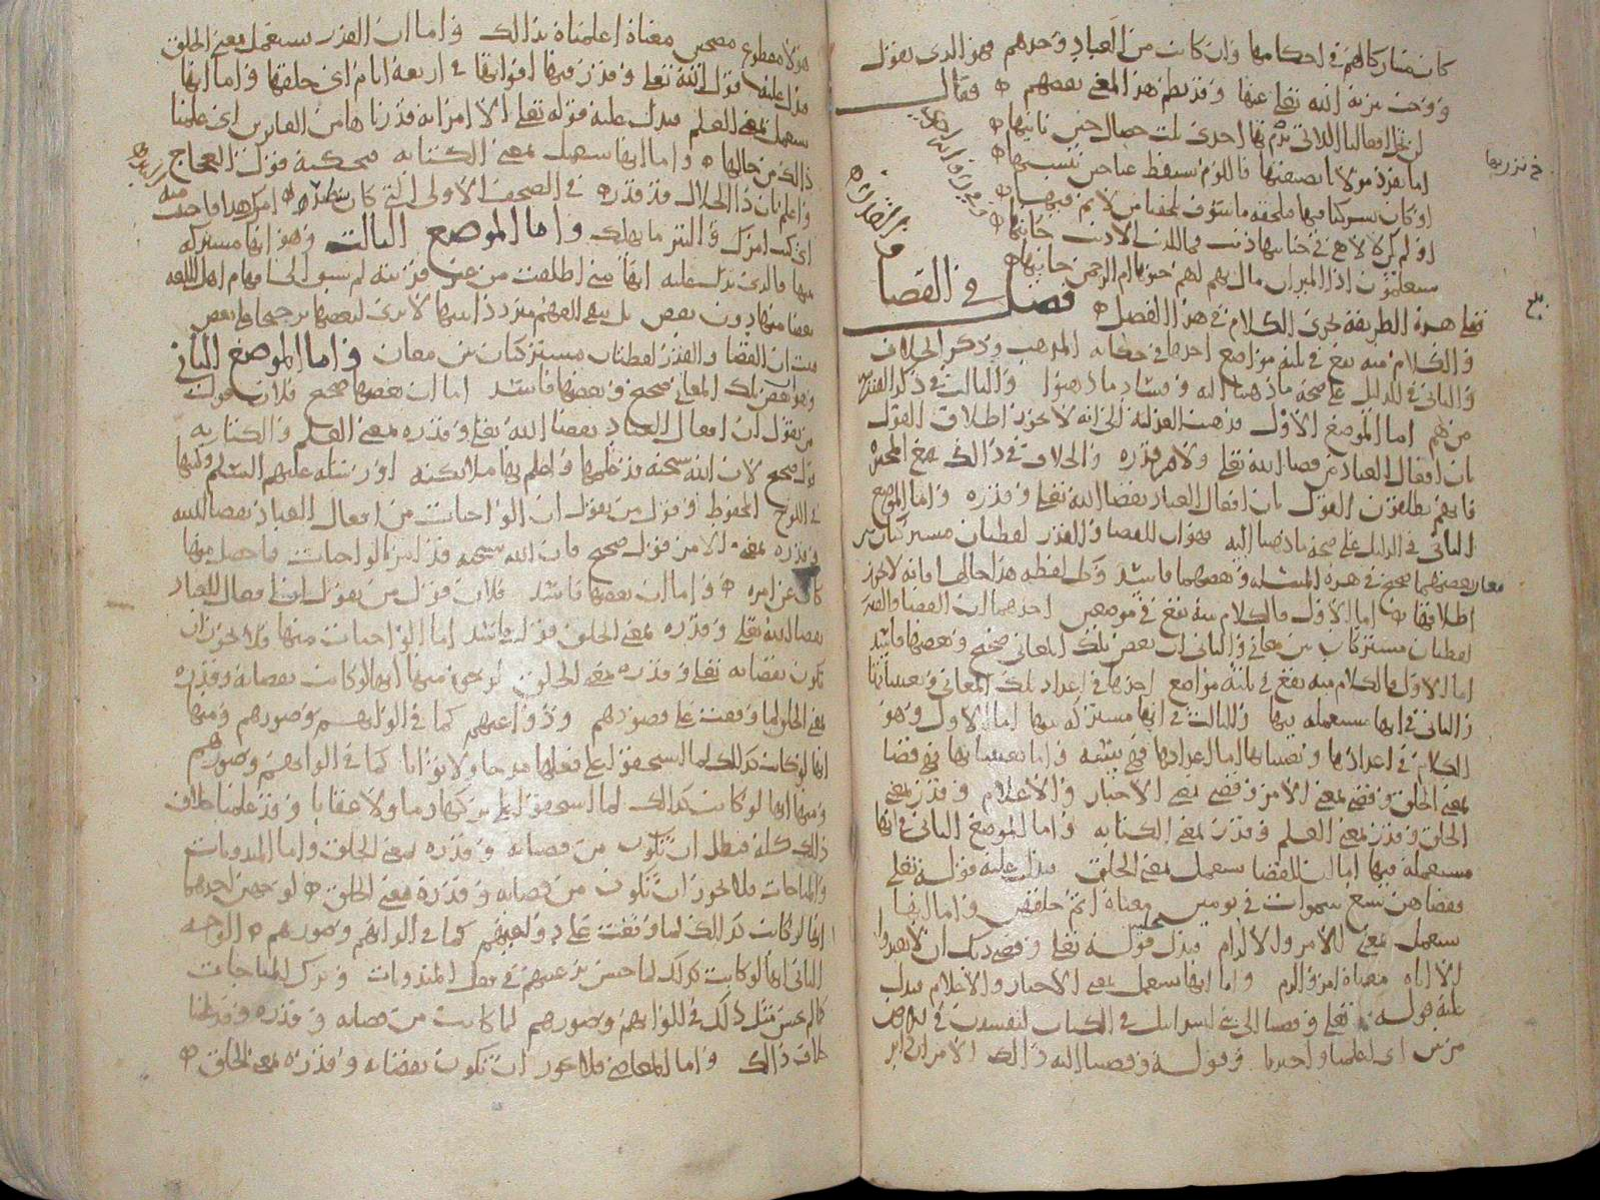 كان مشاركا لهم في احكامها وان كانت من العباد وحدهم فهو الذي نقول
ووجب تنزيه الله تعلى عنها وقد نظم هذا المعنى بعضهم فقال
لن تخل افعالنا اللاتي نذم بها احدى ثلث خصال حين ناتيها
اما تفرد مولانا بصنعتها فاللوم يسقط عنا حين ننشيها
او كان يشركنا فيها فيلحقه ما سوف يلحقنا من لايم فيها
او لم يكن لالاهي في جنايتها ذنب فما الذنب الا ذنب جانيها
سيعلمون اذا الميزان مال بهم اهم جنوها ام الرحمن جانيها
فصل في القضا
والقدر
فعلى هذه الطريقة يجري الكلام في هذا الفصل
والكلام منه يقع في ثلثة مواضع احدها في حكاية المذهب وذكر الخلاف
والثاني في الدليل على صحة ما ذهبنا اليه وفساد ما ذهبوا والثالث في ذكر القدرية
من هم اما الموضع الاول فذهبت العدلية الى انه لا يجوز اطلاق القول
بان افعال العباد من قضا الله تعلى ولا من قدره والخلاف في ذالك مع المجبرة
فانهم يطلقون القول بان افعال العباد بقضا الله تعلى وقدره واما الموضع
الثاني في الدليل على صحة ما ذهبنا اليه فهو ان القضا والقدر لفظتان مشتركتان بين
معان بعضها صحيح في هذه المسئلة وبعضها فاسد وكل لفظة هذا حالها فانه لا يجوز
اطلاقها اما الاول فالكلام منه يقع في موضعين احدهما ان القضا والقدر
لفظتان مشتركتان بين معاني والثاني ان بعض تلك المعاني صحيح وبعضها فاسد
اما الاول فالكلام منه يقع في ثلثة مواضع احدها في اعداد تلك المعاني وتعيينها
والثاني في انها مستعملة فيها والثالث في انها مشتركة بينها اما الاول وهو
الكلام في اعدادها وتعيينها اما اعدادها فهي ستة واما تعيينها فهي قضا
بمعنى الخلق وقضى بمعنى الامر وقضى بمعنى الاخبار والاعلام وقدر بمعنى
الخلق وقدر بمعنى العلم وقدر بمعنى الكتابة واما الموضع الثاني في انها
مستعملة فيها اما ان القضا يستعمل بمعنى الخلق فيدل عليه قوله تعلى
فقضاهن سبع سموات في يومين معناه اتم خلقهن واما انها
يستعمل بمعنى الامر والالزام فيدل عليه قوله تعلى وقضى ربك ان لا تعبدوا
الا اياه معناه امر والزم واما انها يستعمل بمعنى الاخبار والاعلام فيدل
عليه قوله تعلى وقضينا الى بني اسرائيل في الكتاب لتفسدن في الارض
مرتين اي اعلمنا واخبرنا وقوله وقضينا اليه ذالك الامر ان دابر
هؤلاء مقطوع مصبحين معناه اعلمناه بذالك واما ان القدر يستعمل بمعنى الخلق
فيدل عليه قول الله تعلى وقدر فيها اقواتها في اربعة ايام اي خلقها واما انها
يستعمل بمعنى العلم فيدل عليه قوله تعلى الا امراته قدرناها من الغابرين اي علمنا
ذالك من حالها واما انها يستعمل بمعنى الكتابة فيحكيه قول العجاج
واعلم بان ذا الجلال قد قدر في الصحف الاولى التي كان سطر امرك هذا فاجتنب منه
اي كتب امرك واما الموضع الثالث وهو انها مشتركة
بينها فالذي يدل عليه انها متى اطلقت من غير قرينة لم يسبق الى افهام اهل اللغة
بعضا منها دون بعض بل يبقى الفهم متردد
فثبت ان القضا والقدر لفظتان مشتركتان بين معان واما الموضع الثاني
وهو ان بعض تلك المعاني صحيح وبعضها فاسد اما ان بعضها صحيح فلان قول
من يقول ان افعال العباد بقضا الله تعلى وقدره بمعنى العلم والكتابة
قول صحيح لان الله سبحنه قد علمها واعلم بها ملائكته او رسله عليهم السلم وكتبها
في اللوح المحفوظ وقول من يقول ان الواجبات من افعال العباد بقضا الله
وقدره بمعنى الامر قول صحيح فان الله سبحنه قد امر بالواجبات فما حصل منها
كان عن امره واما ان بعضها فاسد فلان قول من يقول ان افعال العباد
بقضا الله تعلى وقدره بمعنى الخلق قول فاسد اما الواجبات منها فلا يجوز ان
تكون بقضايه تعلى وقدره بمعنى الخلق لوجوه منها انها لو كانت بقضايه وقدره
بمعنى الخلق لما وقعت على قصودهم ودواعيهم كما في الوانهم وصورهم ومنها
انها لو كانت كذلك لما استحقوا على فعلها مدحا ولا ثوابا كما في الوانهم وصورهم
ومنها انها لو كانت كذالك لما استحقوا على تركها ذما ولا عقابا وقد علمنا خلاف
ذلك كله فبطل ان تكون من قضايه وقدره بمعنى الخلق واما المندوبات
والمباحات فلا يجوز ان تكون من قضايه وقدره بمعنى الخلق لوجهين احدهما
انها لو كانت كذالك لما وقفت على دواعيهم كما في الوانهم وصورهم الوجه
الثاني انها لو كانت كذلك لما حسن ترغيبهم في فعل المندوبات وترك المباحات
كما لم يحسن مثل ذلك في الوانهم وصورهم لما كانت من قضايه وقدره وقد علمنا
خلاف ذالك واما المعاصي فلا يجوز ان تكون بقضايه وقدره بمعنى الخلق